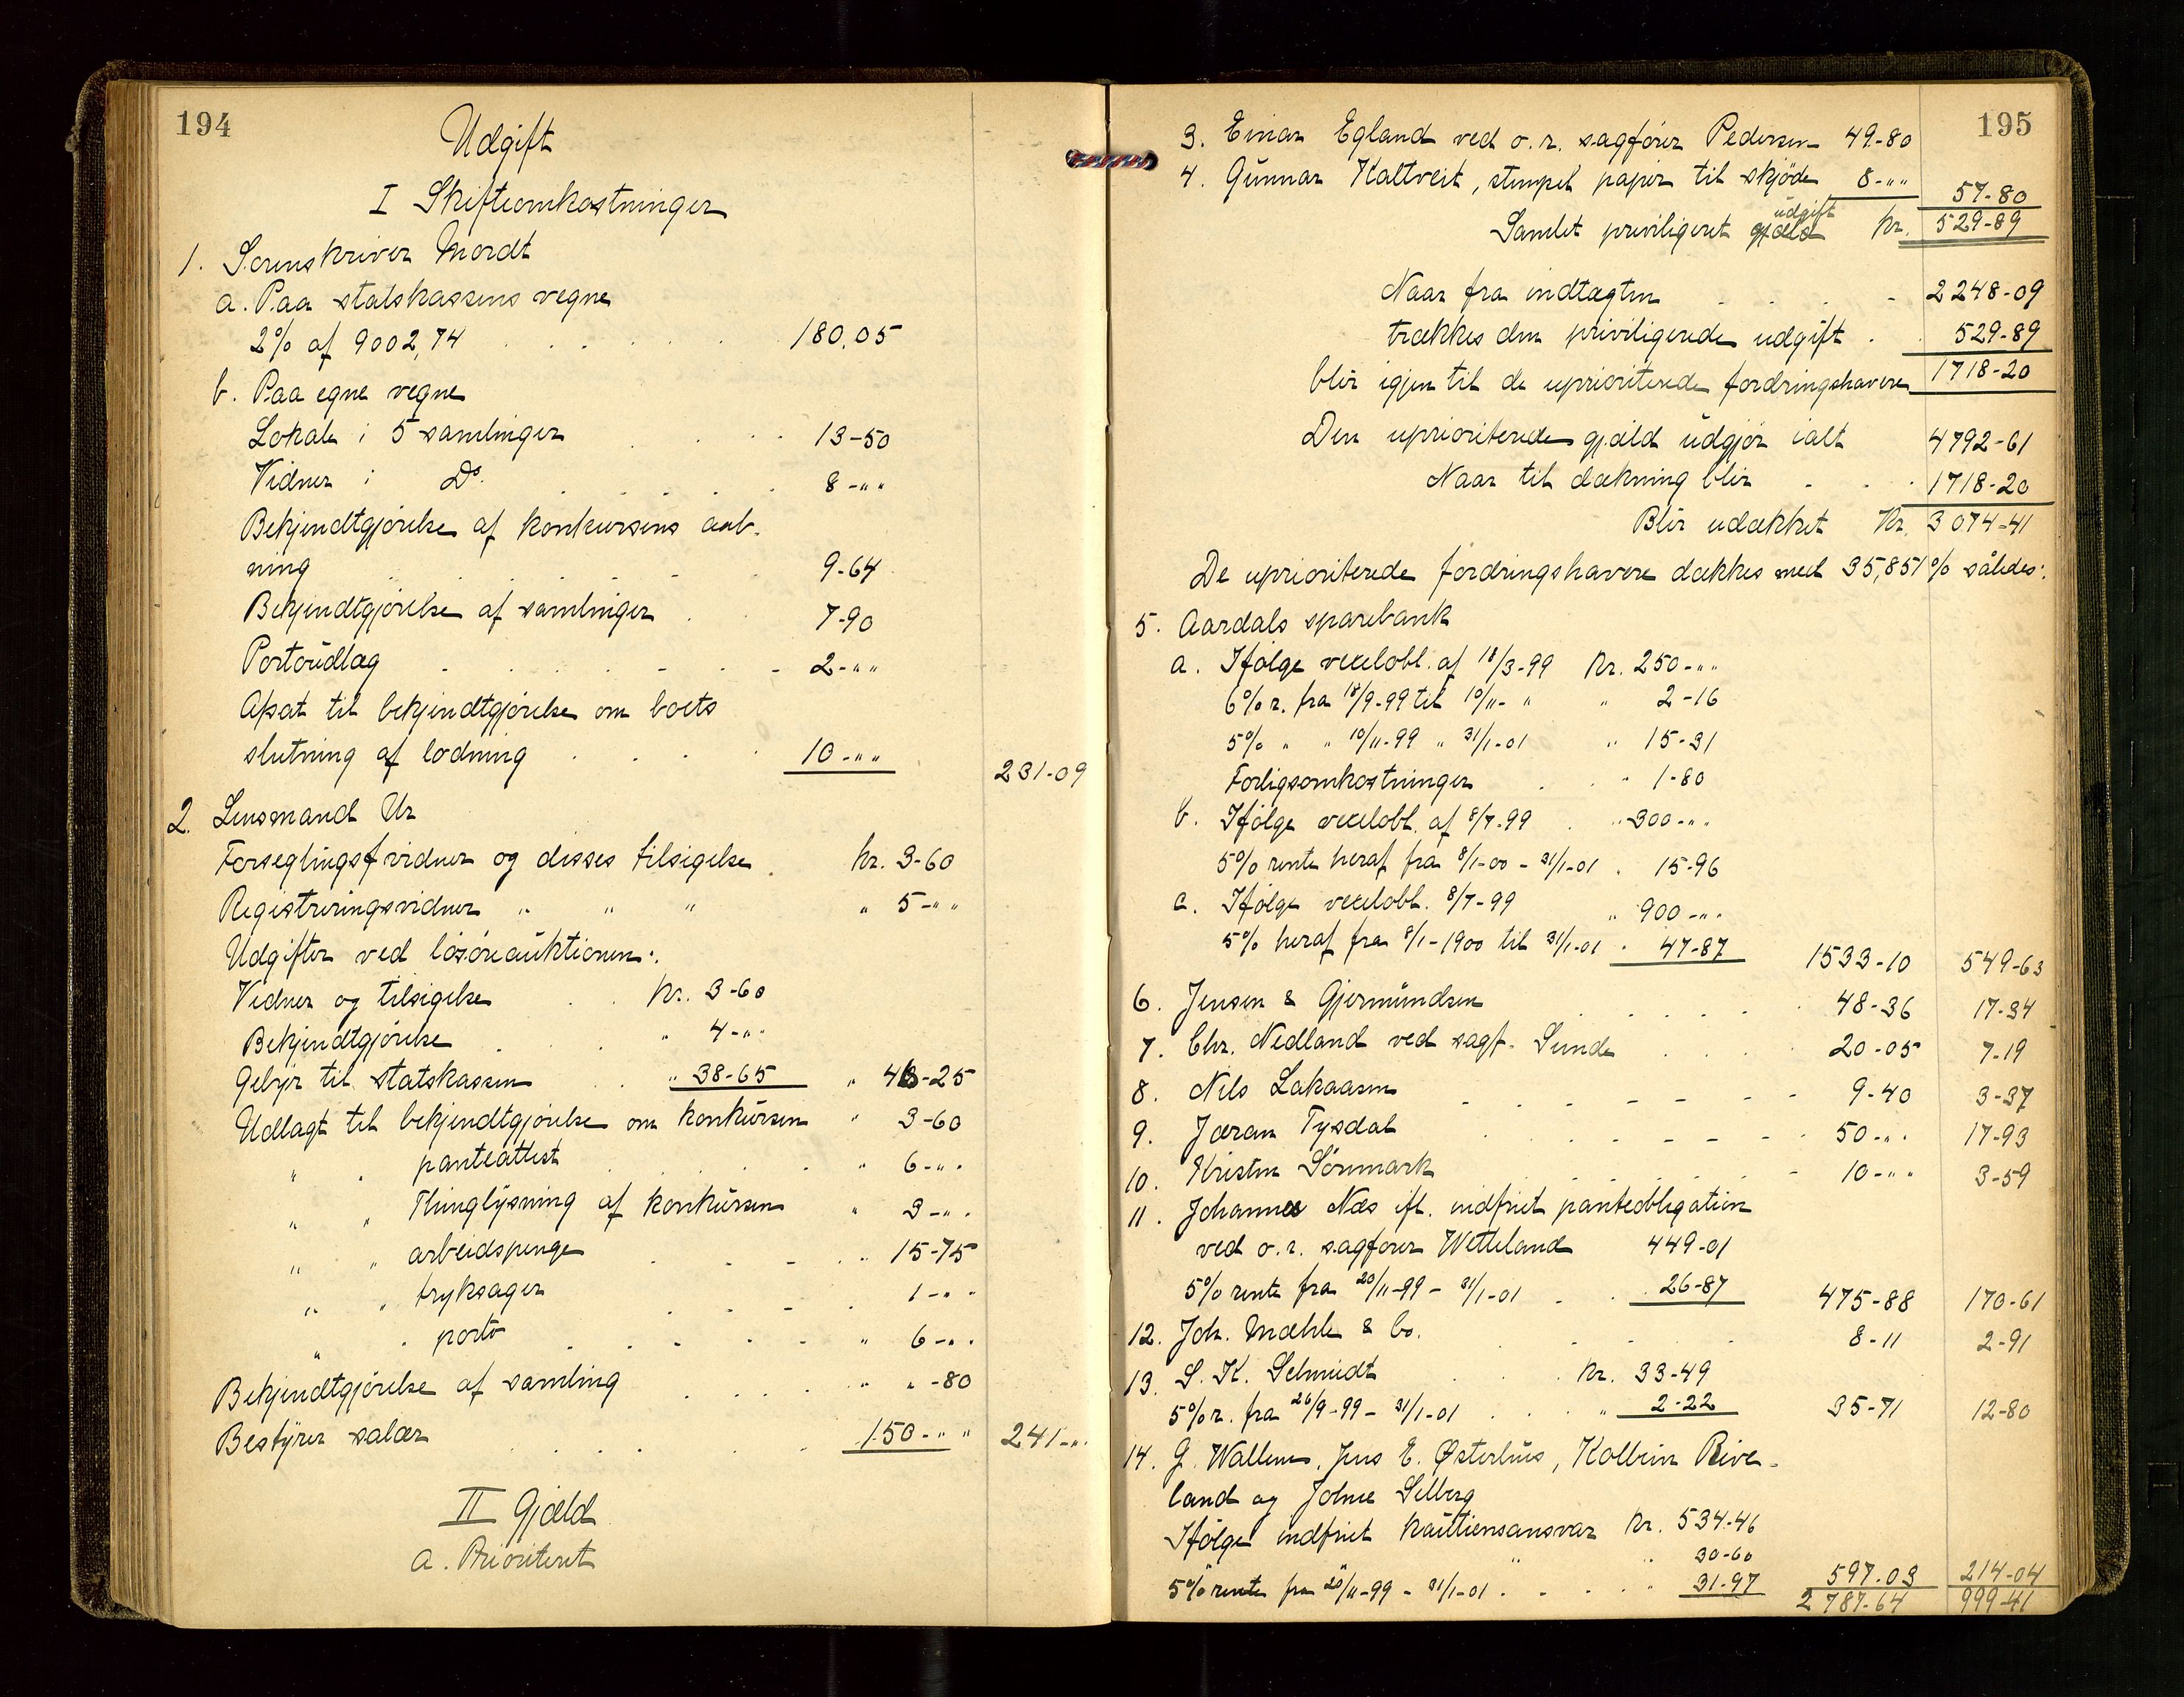 194
Udgift
I Skifteomkostninger
1. Sorenskriver Mordt
a. Paa statskassens vegne
2% af 9002,74 180.05
b. Paa egne vegne
Lokale i 5 samlinger 13-50
Vidner i Do. 8-""
Bekjendtgjørelse af konkursens aab-
ning 9-64
Bekjendtgjørelse af samlinger 7-90
Portoudlæg 2-""
Afsat til bekjendtgjørelse om boets
slutning af lodning 10-"" 231-09
2. Lensmand Ur
Forseglingsfvidner og disses tilsigelse kr. 3-60
Registreringsvidner " " " " 5-""
Udgifter ved løsøreauktionen:
Vidner og tilsigelse kr. 3-60
Bekjendtgjørelse " 4-""
Gebyr til statskassen " 38-65 " 46-25
Udlagt til bekjendtgjørelse om konkursen " 3-60
" " panteattest " 6-"".
" " Thinglysning af konkursen " 3-"".
" " arbeidspenge " 15-75
" " tryksager 1-""
" " porto " 6-"".
Bekjendtgjørelse af samling " "-80
Bestyrer salær 150-"" 241-"".
II Gjæld
a. Prioriteret
195
3. Einar Egland ved o.r. sagfører Pedersen 49-80
4. Gunnar Kaltveit, stempet papir til skjøde 8-"" 57-80
udgift
Samlet priviligeret gjæld kr. 529-89
Naar fra indtægten 2248-09
trækkes den priviligerede udgift 529-89
blir igjen til de uprioriterede fordringshavere 1718-20
Den uprioriterede gjæld udgjør ialt 4792-61
Naar til dækning blir 1718-20
Blir udækket Kr. 3074-41
De uprioriterede fordringshavere dækkes med 35,851% således:
5. Aardals sparebank
a. Ifølge vexelobl. af 18/3-99 Kr. 250-""
6% r. fra 18/9-99 til 10/11-" " 2-16
5% " " 10/11-99 " 31/1-01 " 15-31
Forligsomkostninger " 1-80
b. Ifølge vexelobl. af 8/7-99 " 300-""
5% rente heraf fra 8/1-00 - 31/1-01 . 15-96
c. Ifølge vexelobl. 8/7-99 " 900-"".
5% heraf fra 8/1-1900 til 31/1-01 . 47-87 1533-10 549-63
6. Jensen & Gjermundsen 48-36 17-34
7. Chr. Nedland ved sagf. Sunde 20-05 7-19
8. Nils Lakaasen 9-40 3-37
9. Jøran Tysdal 50-"". 17-93
10. Kristen Sønmark 10-"" 3-59
11. Johannes Næs ifl. indfriet panteobligation
ved o.r. sagfører Wetteland 449-01
5% rente fra 20/11-99 - 31/1-01 26-87 475-88 170-61
12. Joh. Mæhle & Co. 8-11 2-91
13. S. K. Schmidt kr. 33-49
5% r. fra 26/9-99 - 31/1-01 " 2-22 35-71 12-80
14. G. Wallem, Jens E. Østerhus, Kolbein Rive-
land og Selberg
Ifølge indfriet kautionsansvar kr. 534-46
" " 30-60
5% rente fra 20/11-99 - 31/1-01 " 31-97 597-03 214-04
2787-64 999-41